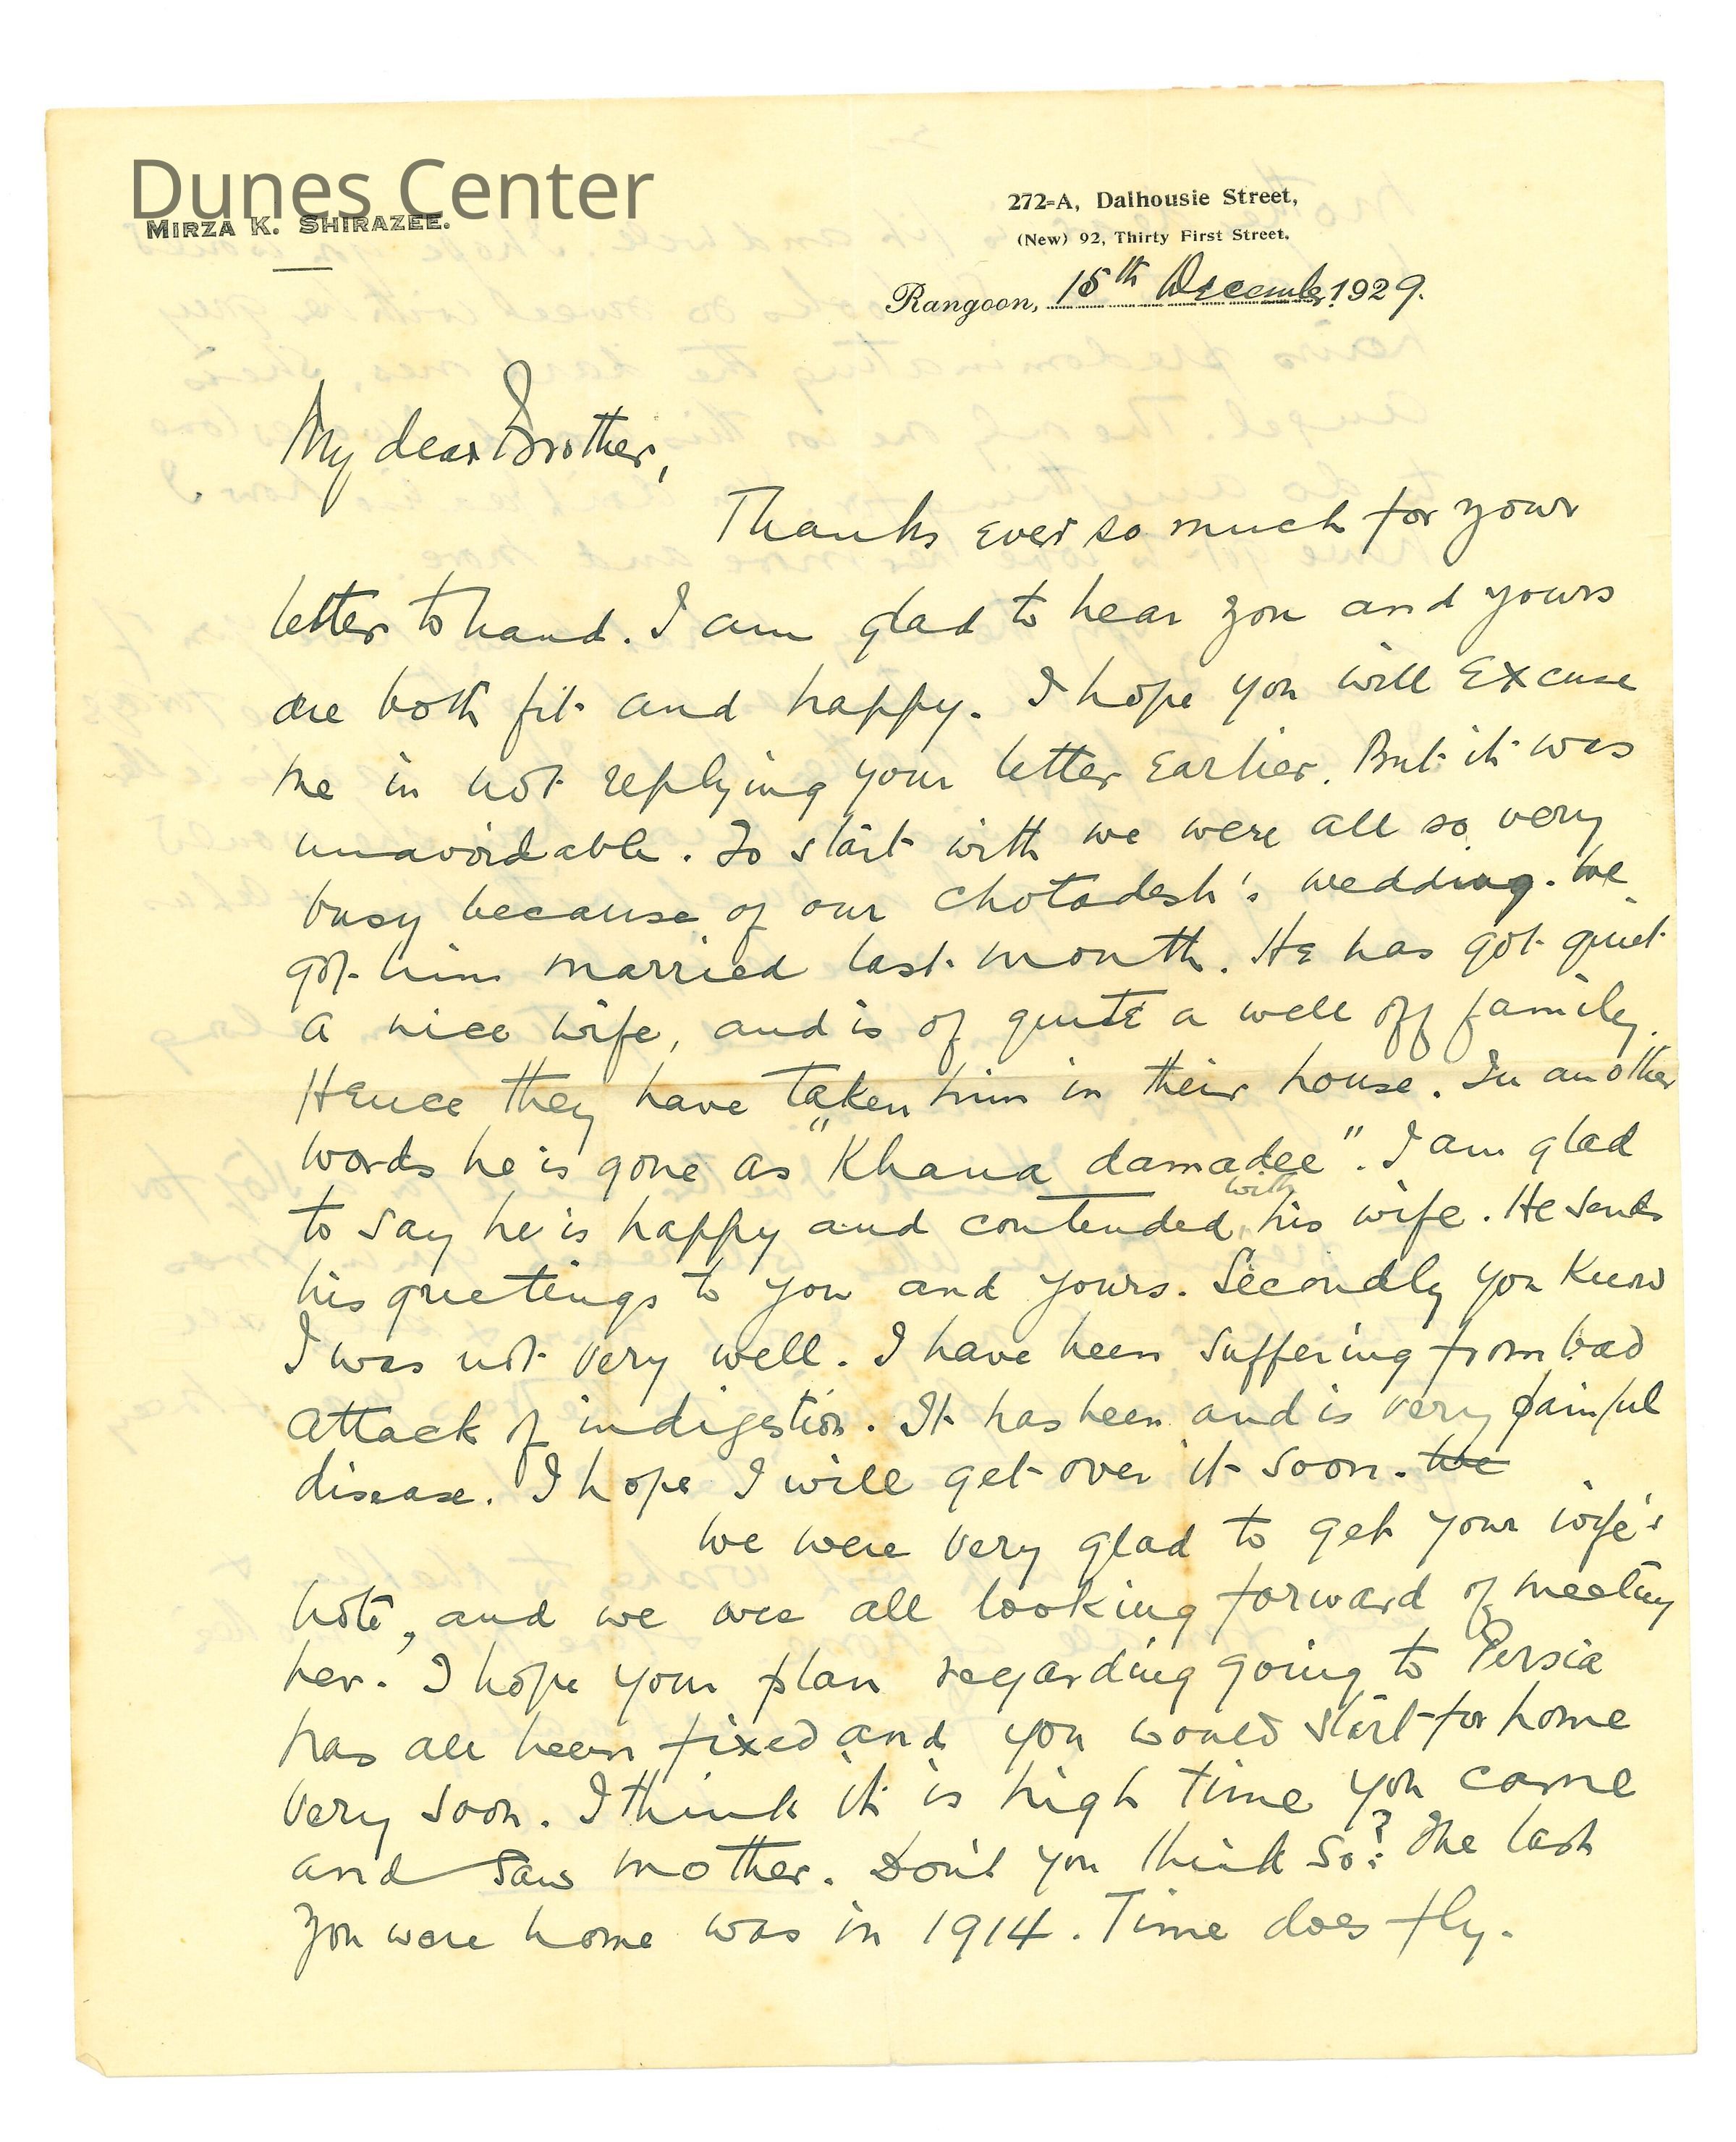 Dunes Center
MIRZA K. SHIRAZEE.
272=A, Dalhousie Street,
(New) 92, Thirty First Street,
Rangoon, 15th December 1929.
My dear Brother,
Thanks ever so much for your
letter to hand. I am glad to hear you and yours
are both fit and happy. I hope you will Excuse
me in not replying your letter Earlier. But it was
unavoidable. To start with we were all so very
busy because of our Chotadesh's wedding. We
got him married last month. He has got quiet
a nice wife, and is of quite a well off family.
Hence they have taken him in their house. In another
words he is gone as "Khana damadee". I am glad
to say he is happy and contended with his wife. He sends
his greetings to you and yours. Secondly you know
I was not very well. I have been suffering from bad
attack of indigestion. It has been and is very painful
disease. I hope I will get over it soon. We
We were very glad to get your wife's
note, and we are all looking forward of meeting
her. I hope your plan regarding going to Persia
has all been fixed and you would start for home
very soon. I think it is high time you came
and saw mother. Don't you think so? The last
you were home was in 1914. Time does fly.